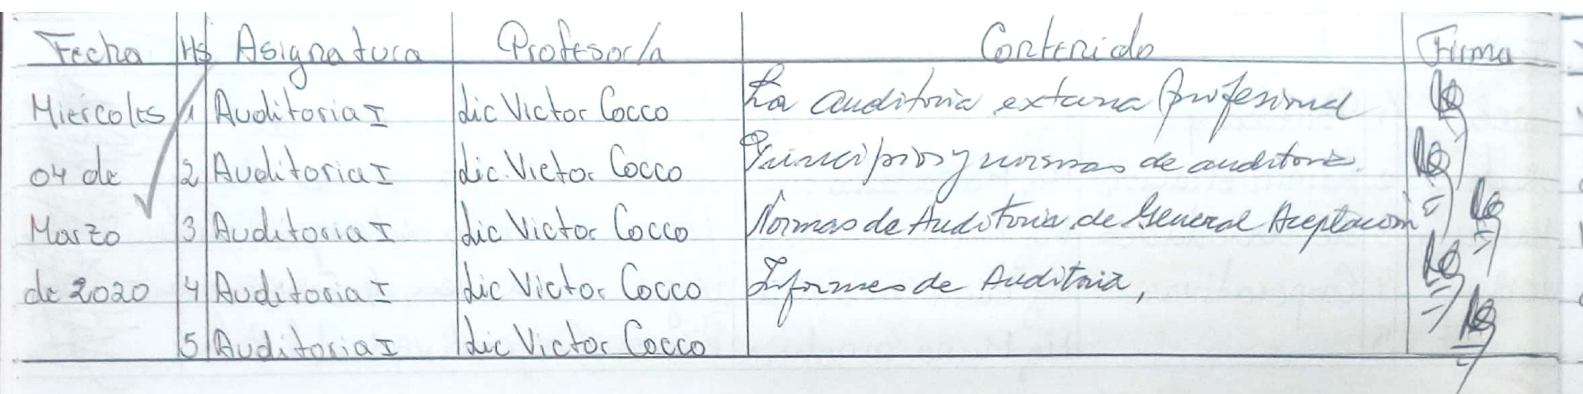 Fecha Hs Asignatura Profesor/a Contenido Firma
Miércoles 1 Auditoria I Lic Victor Cocco La auditoria externa profesional
04 de 2 Auditoria I Lic. Victor Cocco Principios y normas de auditoria.
Marzo 3 Auditoria I Lic Victor Cocco Normas de Auditoria de General Aceptación
de 2020 4 Auditoria I Lic Victor Cocco Informes de Auditoria,
5 Auditoria I Lic Victor Cocco